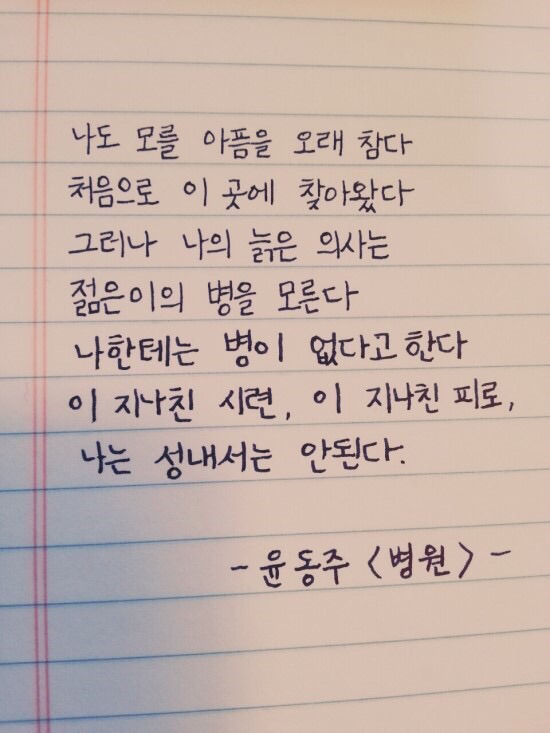 나도 모를 아픔을 오래 참다
처음으로 이 곳에 찾아왔다
그러나 나의 늙은 의사는
젊은이의 병을 모른다
나한테는 병이 없다고 한다
이 지나친 시련, 이 지나친 피로,
나는 성내서는 안된다.
- 윤동주 〈병원〉 -